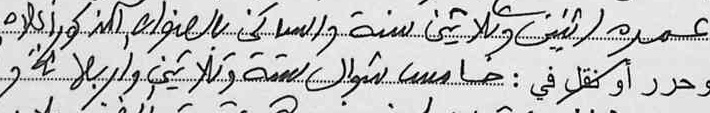 عمره اثنين وثلاثين سنة والساكن بالعنوان المذكور أعلاه
وحرر أو نقل في : خامس شوال ستة وثلاثين وأربعمائة و